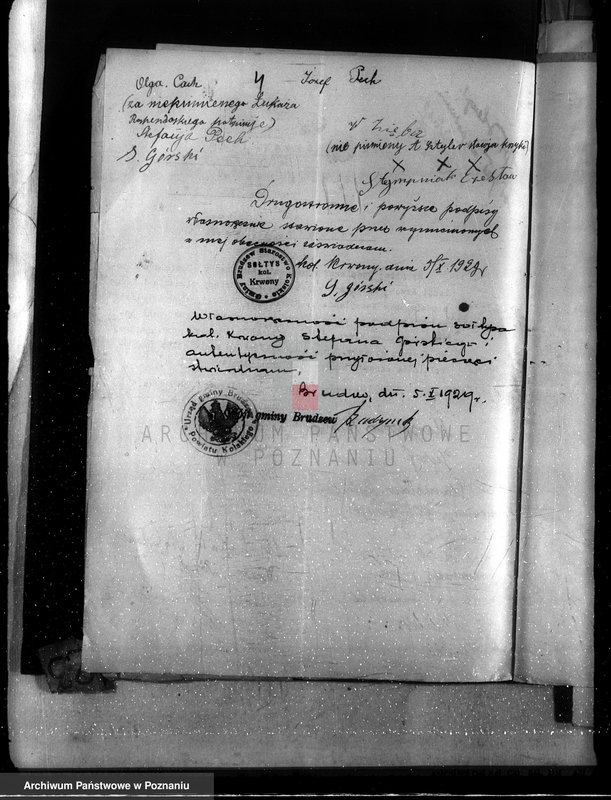 Olga. Cach
4
Józef Pech
(za niepiśmiennego Łukasza
podpisuje)
Pech
S. Górski
W Zięba
(nie piśmienny
× × ×
Drugostronne i powyższe podpisy
własnoręczne stawione przez wymienionych
w mej obecności zaświadczam.
kol. Krwony, dnia 5/X 1929r
S. Górski
Gminy Brudzew Starostwo Kolskie
SOŁTYS
kol.
Krwony
Własnoręczność podpisu sołtysa
kol. Krwony Stefana Górskiego i
autentyczność przyłożonej pieczęci
stwierdzam.
Brudzew, dn. 5.X 1929r.
Urząd Gminy Brudzew
Powiatu Kolskiego
gminy Brudzew
ARCHIWUM PAŃSTWOWE
W POZNANIU
Archiwum Państwowe w Poznaniu